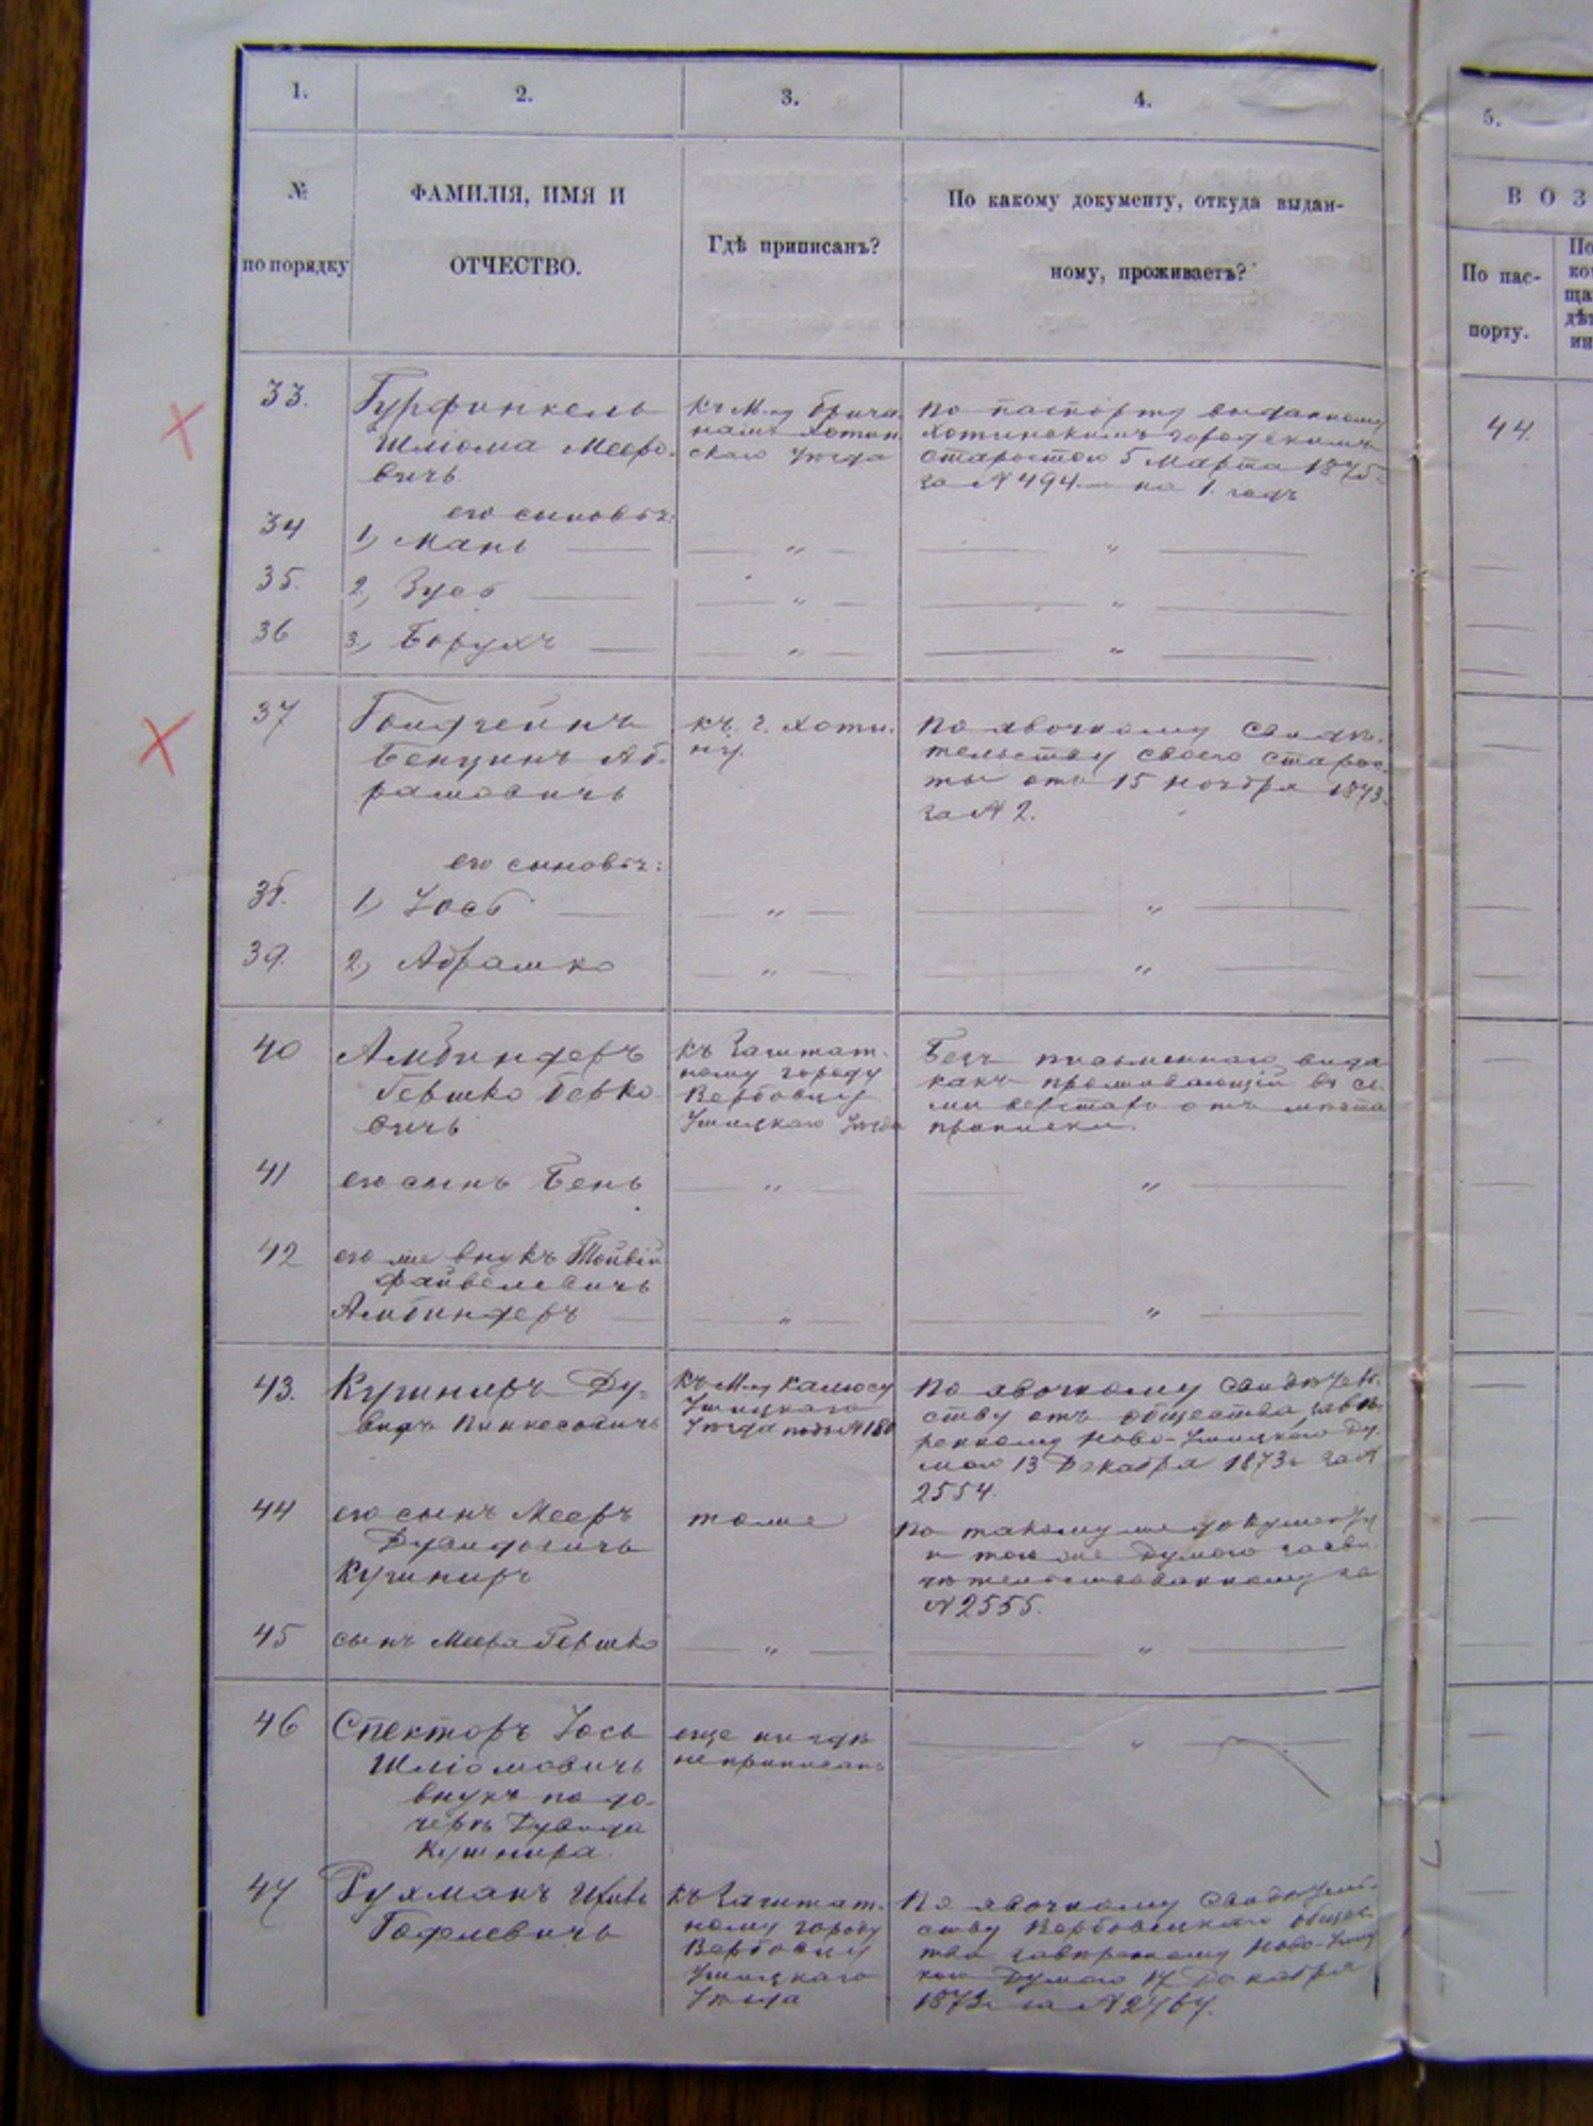 1. 2. 3. 4.
5.
№
по порядку
ФАМИЛІЯ, ИМЯ И
ОТЧЕСТВО.
Гдѣ приписанъ?
По какому документу, откуда выдан-
ному, проживаетъ?
ВОЗ
По пас-
порту.
33.
Гурфинкель
Шліома Мееро-
вичъ
къ М-ку Брича-
намъ Хотин-
скаго Уѣзда
По паспорту выданному
Хотинскимъ городскимъ
старостою 5 Марта 1875
за № 494 на 1. годъ
44.
его сыновья:
34 1, Мань — „ — „
35. 2, Зусь — „ — „
36 3, Борухъ — „ — „
37
Бенционъ Аб-
рамовичъ
къ г. Хоти-
ну.
По явочному свидѣ-
тельству своего старос-
ты отъ 15 Ноября 1873
за № 2.
его сыновья:
38. 1, Іось — „ — „
39. 2, Абрамко — „ — „
40
Амбиндеръ
Гершко Берко-
вичъ
къ Заштат-
ному городу
Вербовцу
Ушицкаго Уѣзда
Безъ письменнаго вида
какъ проживающій въ се-
ми верстахъ отъ мѣста
приписки.
41 его сынъ Бень — „ — „
42
его же внукъ Тойвій
Файвелевичъ
Амбиндеръ — „ — „
43.
Кушниръ Ду-
видъ Пинкесовичъ
къ М-ку Калюсу
Ушицкаго
Уѣзда подъ № 180
По явочному свидѣтель-
ству отъ общества завѣ-
ренному Ново-Ушицкою Ду-
мою 13 Декабря 1873 г за №
2554.
44
его сынъ Мееръ
Дувидовичъ
Кушниръ
тоже
По такому же документу
и тою же Думою засви-
дѣтельствованному за
№ 2555.
45 сынъ Меера Гершко — „ — „
46
Спекторъ Іось
Шліомовичъ
внукъ по до-
черѣ Дувида
Кушнира.
еще нигдѣ
не приписанъ
„
47
Рухманъ
къ Заштат-
ному городу
Вербовцу
Ушицкаго
Уѣзда
По явочному свидѣтель-
ству Вербовецкаго общес-
тва завѣренному Ново-Ушиц
кою Думою 17 Декабря
1873 г за № 2767.